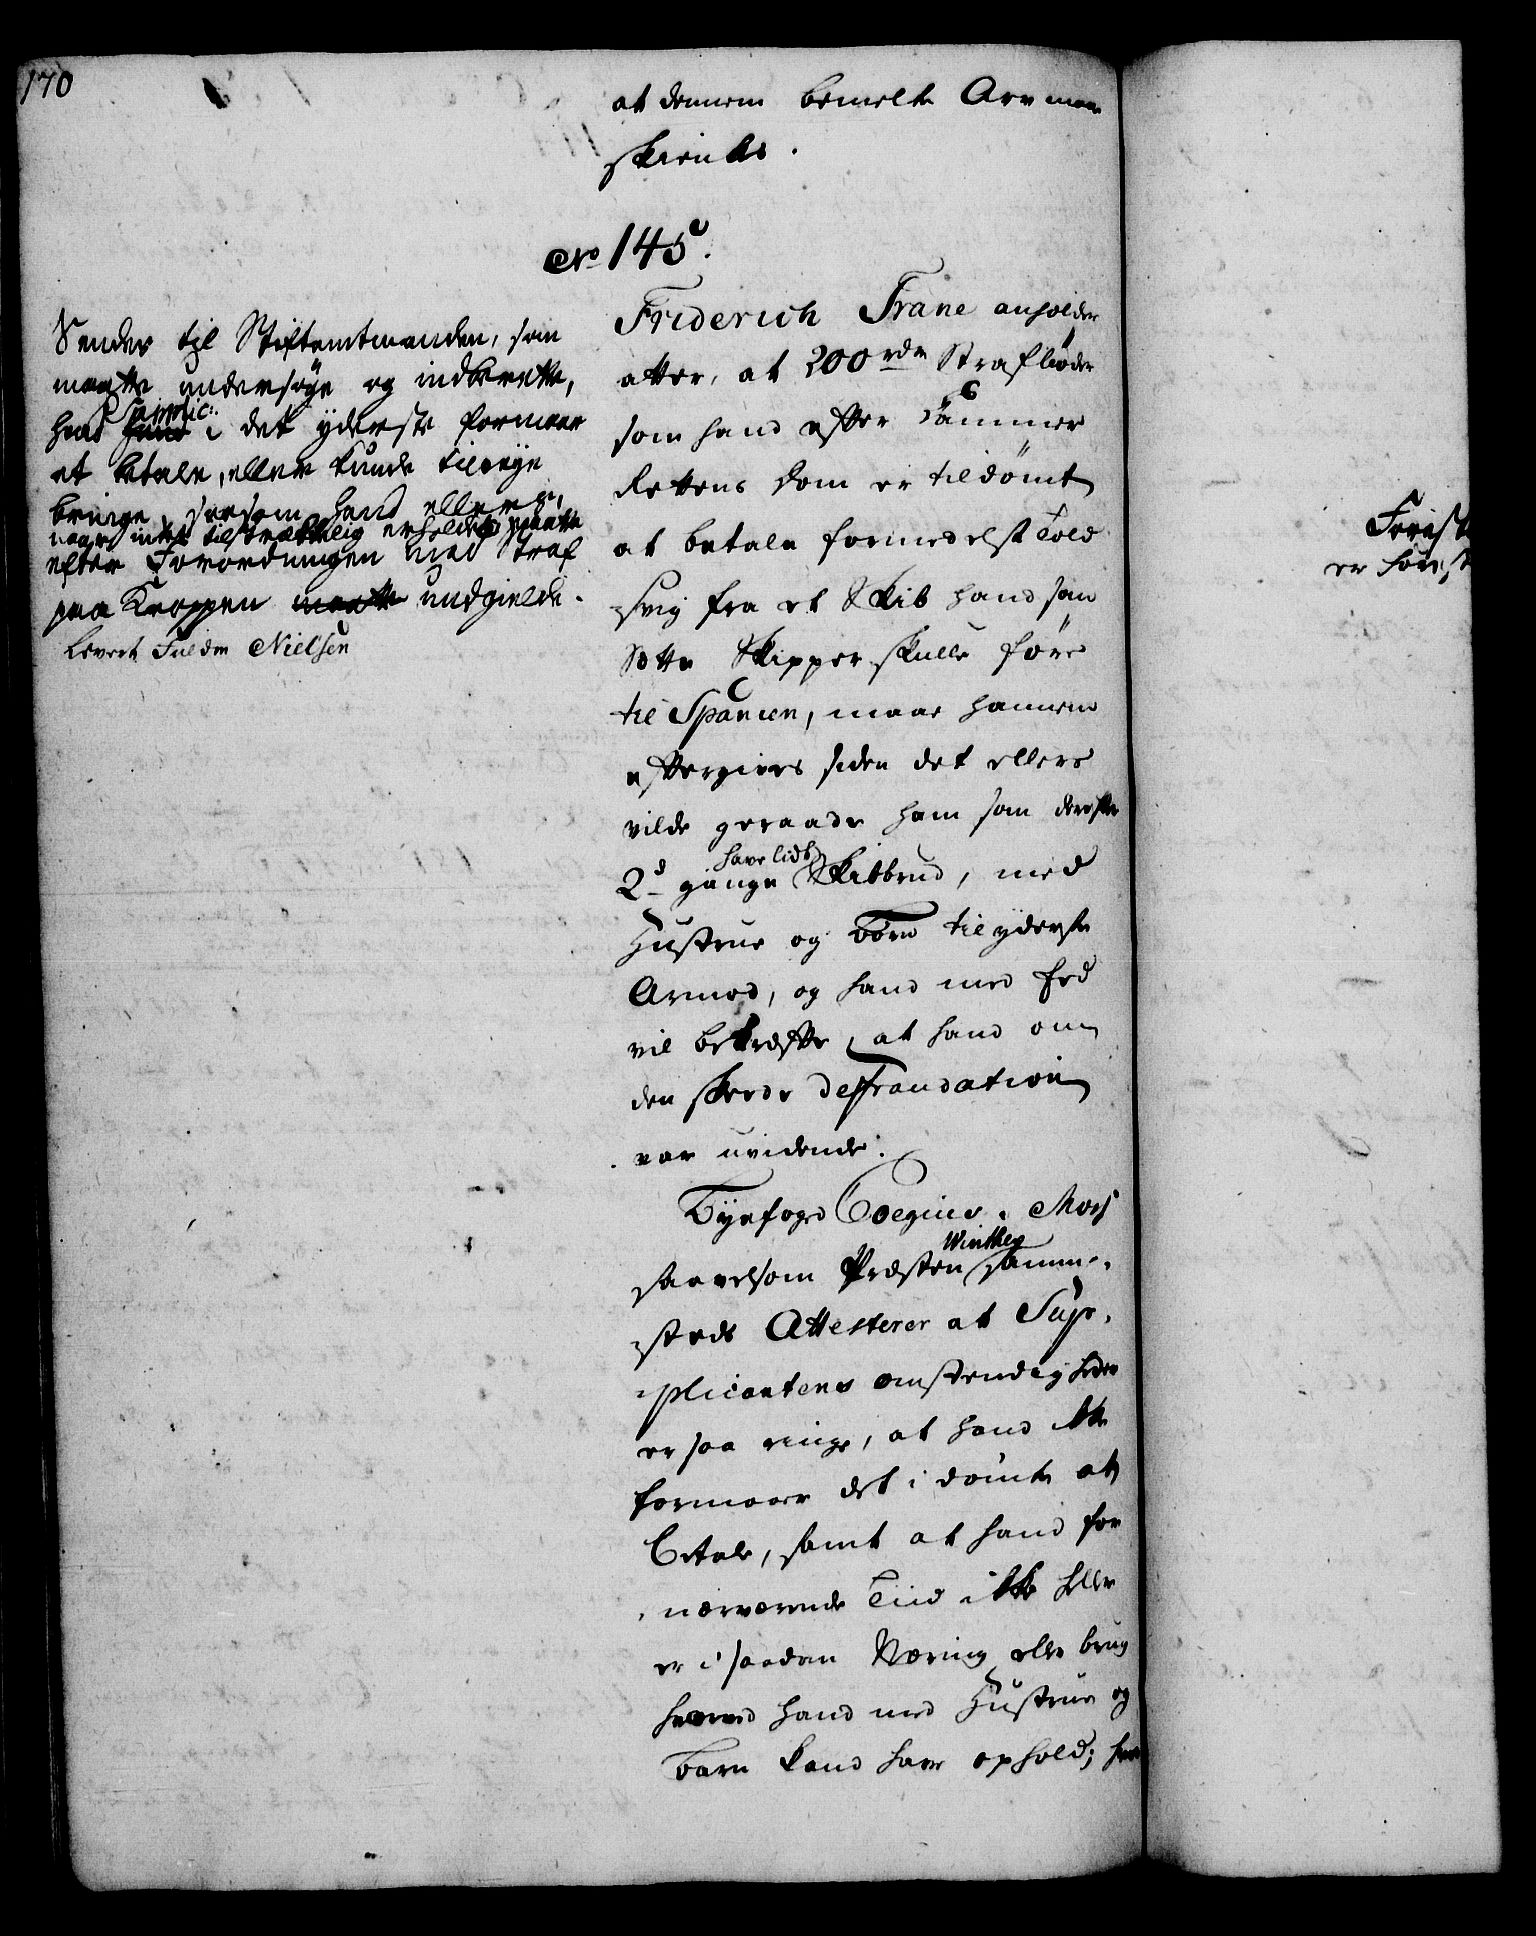 170
at dennem bemelte Arv maae
skienkes.
No 145.
Friderich Trane anholder
atter, at 200 rdr Strafbøder
som hand efter Cammer
Rettens Dom er tildömt
at betale formedelst Told
svig fra et Skib hand som
Sætte Skipper skulle före
til Spanien, maae hannem
eftergives siden det ellers
vilde geraade ham som derefter
2de gange have lidt Skibbrud, med
Hustrue og Børn til yderste
Armod, og hand med Eed
vil bekræfte, at hand om
den skeede Deffraudation
var uvidende.
Byefoged i Mors
saavelsom Præsten Winther samme-
steds Attesterer at Sup-
plicantens omstendigheder
er saa ringe, at hand ikke
formaaer det idömte at
betale, samt at hand for
nærværende Tiid ikke heller
er i saadan Næring eller brug
hvorved hand med Hustrue og
Børn kand have ophold;
Sendes til Stiftamtmanden, som
maatte undersøge og indberette,
hvad Supplic: i det yderste formaaer
at betale, eller kunde tilveye
bringe, saasom hand ellers,
naar intet tilstrækkelig erholdes, maatte
efter Forordningen med Straf
paa Kroppen maatte undgielde.
Levert Fuldm Nielsen